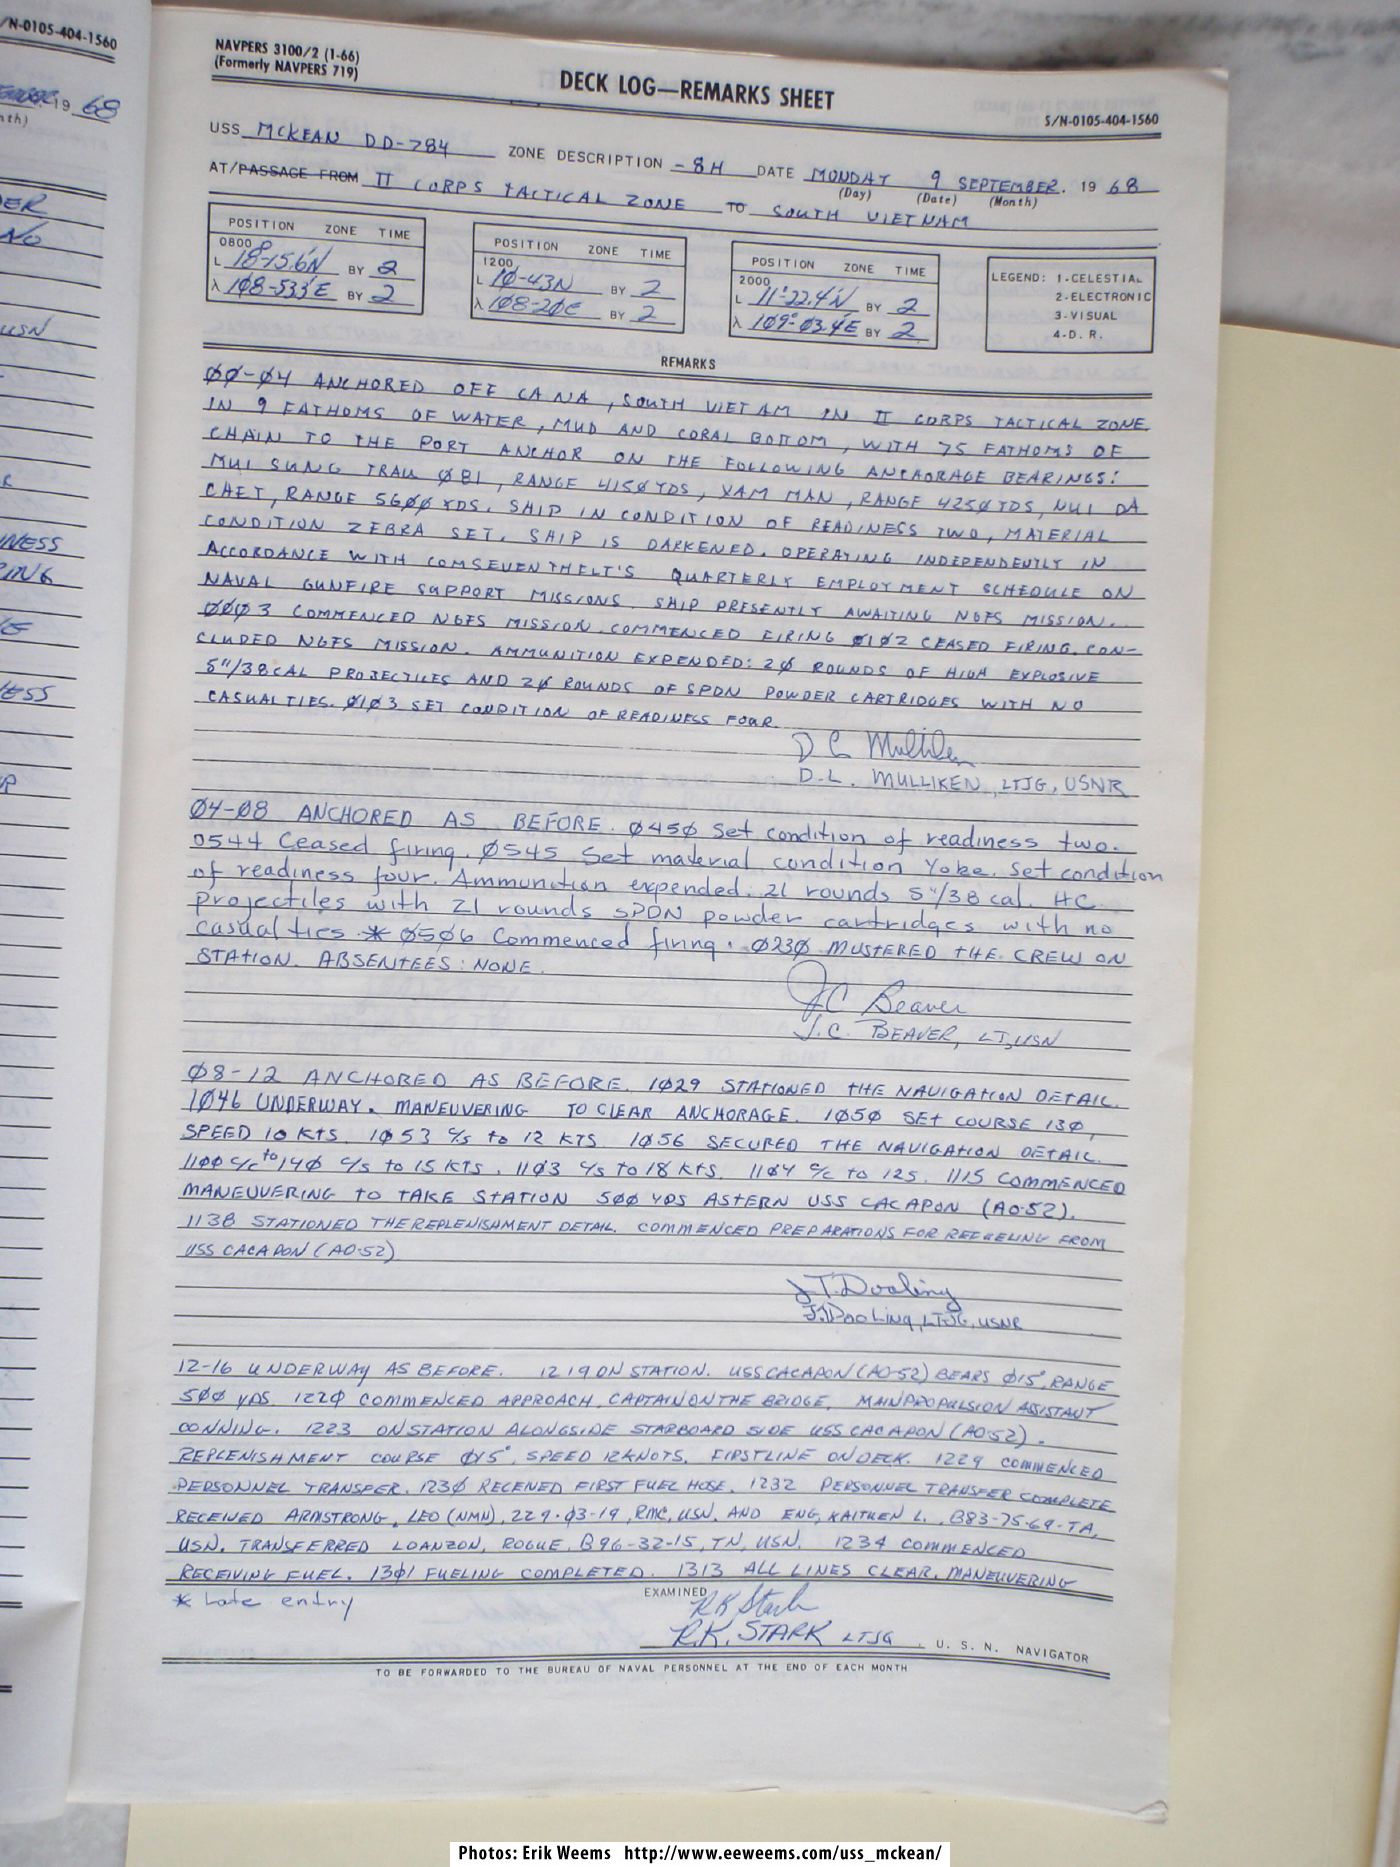 /N-0105-404-1560
19 68
NAVPERS 3100/2 (1-66)
(Formerly NAVPERS 719)
DECK LOG—REMARKS SHEET
S/N-0105-404-1560
USS MCKEAN DD-784 ZONE DESCRIPTION -8H DATE MONDAY 9 SEPTEMBER. 19 68
(Day) (Date) (Month)
AT/PASSAGE FROM II CORPS TACTICAL ZONE TO SOUTH VIETNAM
POSITION ZONE TIME
0800
L BY 2
λ 108-53.5'E BY 2
POSITION ZONE TIME
1200
L 10-43N BY 2
λ 108-20E BY 2
POSITION ZONE TIME
2000
L 11°-22.4'N BY 2
λ 109°-03.4'E BY 2
LEGEND: 1-CELESTIAL
2-ELECTRONIC
3-VISUAL
4-D. R.
REMARKS
ØØ-Ø4 ANCHORED OFF CA NA, SOUTH VIET AM IN II CORPS TACTICAL ZONE.
IN 9 FATHOMS OF WATER, MUD AND CORAL BOTTOM, WITH 75 FATHOMS OF
CHAIN TO THE PORT ANCHOR ON THE FOLLOWING ANCHORAGE BEARINGS:
MUI SUNG TRAU Ø81, RANGE 415Ø YDS, XAM MAN, RANGE 425Ø YDS, NUI DA
CHET, RANGE 56ØØ YDS. SHIP IN CONDITION OF READINESS TWO, MATERIAL
CONDITION ZEBRA SET. SHIP IS DARKENED. OPERATING INDEPENDENTLY IN
ACCORDANCE WITH COMSEVENTHFLT'S QUARTERLY EMPLOYMENT SCHEDULE ON
NAVAL GUNFIRE SUPPORT MISSIONS. SHIP PRESENTLY AWAITING NGFS MISSION.
ØØØ3 COMMENCED NGFS MISSION. COMMENCED FIRING Ø1Ø2 CEASED FIRING. CON-
CLUDED NGFS MISSION. AMMUNITION EXPENDED: 2Ø ROUNDS OF HIGH EXPLOSIVE
5"/38 CAL PROJECTILES AND 2Ø ROUNDS OF SPDN POWDER CARTRIDGES WITH NO
CASUALTIES. Ø1Ø3 SET CONDITION OF READINESS FOUR.
D L Mulliken
D. L. MULLIKEN, LTJG, USNR
Ø4-Ø8 ANCHORED AS BEFORE. Ø45Ø Set condition of readiness two.
0544 Ceased firing. Ø545 Set material condition Yoke. Set condition
of readiness four. Ammunition expended: 21 rounds 5"/38 cal. HC
projectiles with 21 rounds SPDN powder cartridges with no
casualties * Ø5Ø6 Commenced firing. Ø23Ø MUSTERED THE CREW ON
STATION. ABSENTEES: NONE.
JC Beaver
J.C. BEAVER, LT, USN
Ø8-12 ANCHORED AS BEFORE. 1Ø29 STATIONED THE NAVIGATION DETAIL.
1Ø46 UNDERWAY. MANEUVERING TO CLEAR ANCHORAGE. 1Ø5Ø SET COURSE 13Ø,
SPEED 10 KTS. 1Ø53 C/S to 12 KTS. 1Ø56 SECURED THE NAVIGATION DETAIL.
1100 C/C to 14Ø C/S to 15 KTS. 11Ø3 C/S to 18 KTS. 11Ø4 C/C to 125. 1115 COMMENCED
MANEUVERING TO TAKE STATION 5ØØ YDS ASTERN USS CACAPON (AO-52).
1138 STATIONED THE REPLENISHMENT DETAIL. COMMENCED PREPARATIONS FOR REFUELING FROM
USS CACAPON (AO-52)
J T. Dooling
J.T. Dooling, LTJG, USNR
12-16 UNDERWAY AS BEFORE. 1219 ON STATION. USS CACAPON (AO-52) BEARS Ø15°, RANGE
5ØØ YDS. 122Ø COMMENCED APPROACH, CAPTAIN ON THE BRIDGE, MAIN PROPULSION ASSISTANT
CONNING. 1223 ON STATION ALONGSIDE STARBOARD SIDE USS CACAPON (AO-52).
REPLENISHMENT COURSE Ø15°, SPEED 12 KNOTS. FIRST LINE ON DECK. 1229 COMMENCED
PERSONNEL TRANSFER. 123Ø RECEIVED FIRST FUEL HOSE. 1232 PERSONNEL TRANSFER COMPLETE
RECEIVED ARMSTRONG, LEO (NMN), 229-Ø3-19, RMC, USN. AND ENG, KAITKEN L., B83-75-69-TA,
USN. TRANSFERRED LOANZON, ROGUE, B96-32-15, TN, USN. 1234 COMMENCED
RECEIVING FUEL. 13Ø1 FUELING COMPLETED. 1313 ALL LINES CLEAR. MANEUVERING
* Late entry
EXAMINED
RK Stark
R.K. STARK LTJG, U. S. N. NAVIGATOR
TO BE FORWARDED TO THE BUREAU OF NAVAL PERSONNEL AT THE END OF EACH MONTH
Photos: Erik Weems http://www.eeweems.com/uss_mckean/